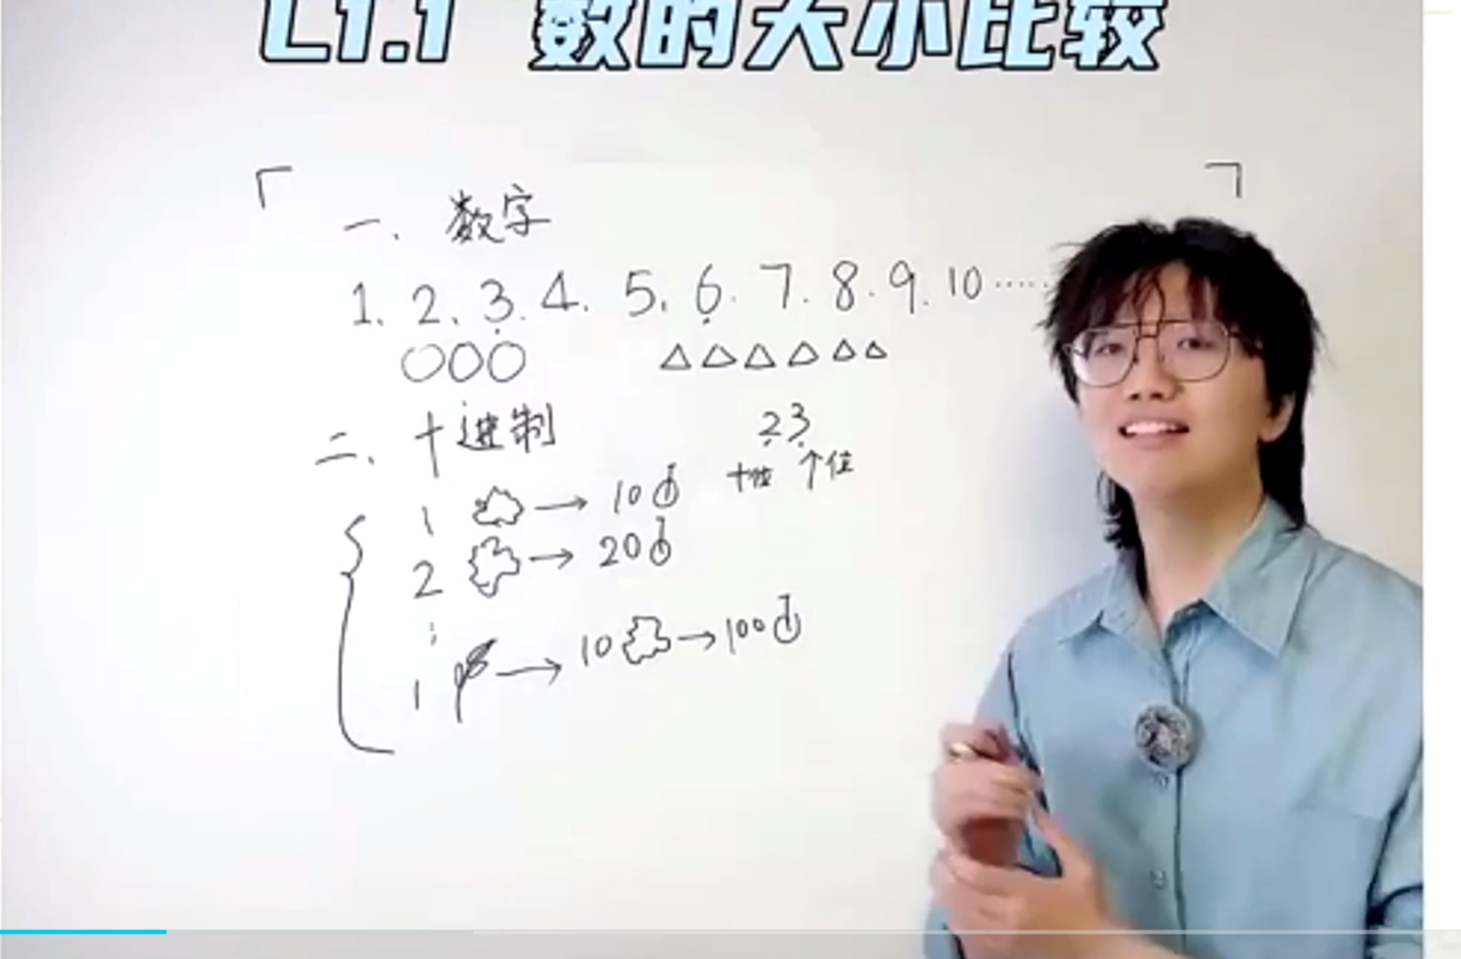 L1.1 数的大小比较
一、数字
1、2、3、4、5、6、7、8、9、10……
二、十进制
23
十位 个位
1 → 10
2 → 20
1 → 10 → 100